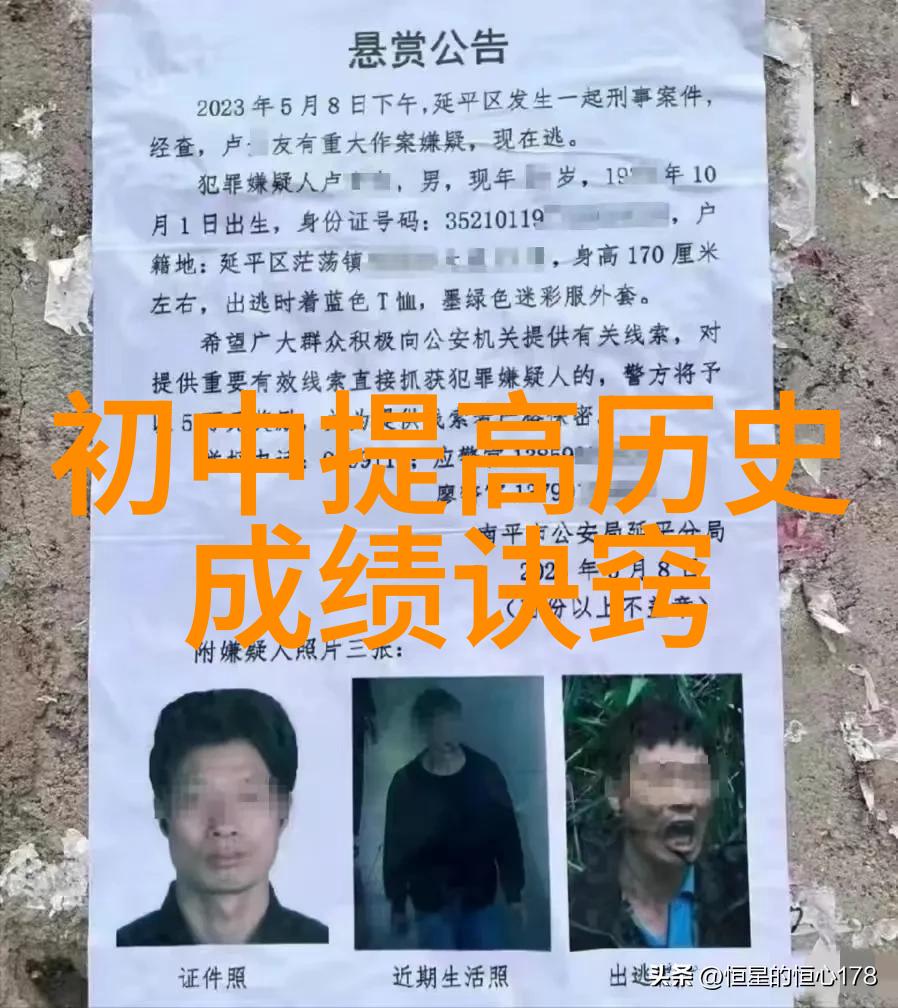 悬赏公告
2023年5月8日下午,延平区发生一起刑事案件,
经查,卢 友有重大作案嫌疑,现在逃。
犯罪嫌疑人卢 ,男,现年 岁,19 年10
月1日出生,身份证号码:35210119 ,户
籍地:延平区茫荡镇 ,身高170厘米
左右,出逃时着蓝色T恤,墨绿色迷彩服外套。
希望广大群众积极向公安机关提供有关线索,对
提供重要有效线索直接抓获犯罪嫌疑人的,警方将予
初中提高历史
成绩诀窍
南平市公安局延平分局
附嫌疑人照片三张:
证件照
近期生活照
出逃
头条 @恒星的恒心178